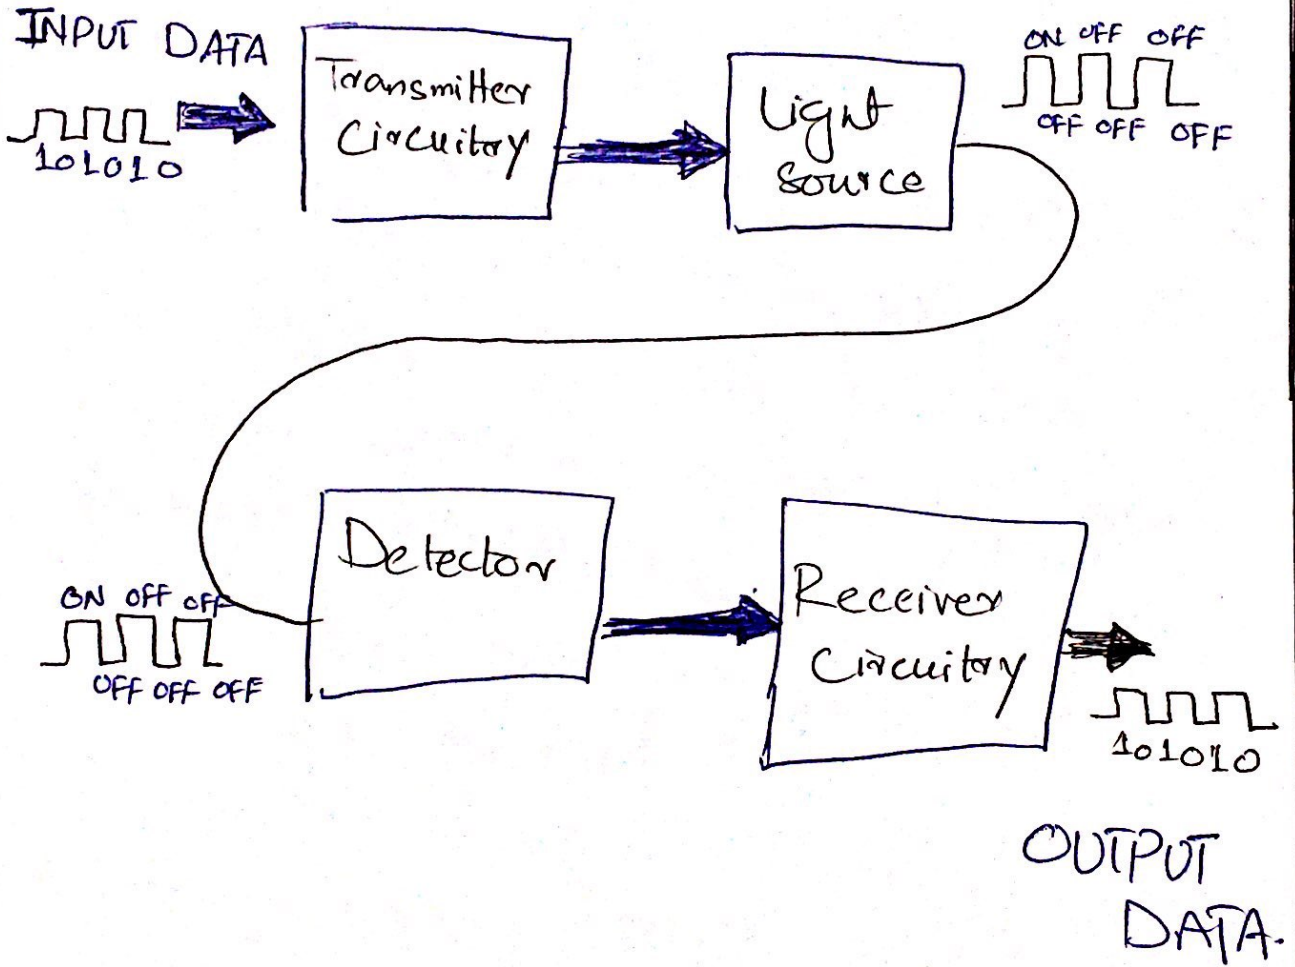 INPUT DATA
101010
Transmitter
Circuitry
Light
Source
ON OFF OFF
OFF OFF OFF
Detector
ON OFF OFF
OFF OFF OFF
Receiver
Circuitry
101010
OUTPUT
DATA.